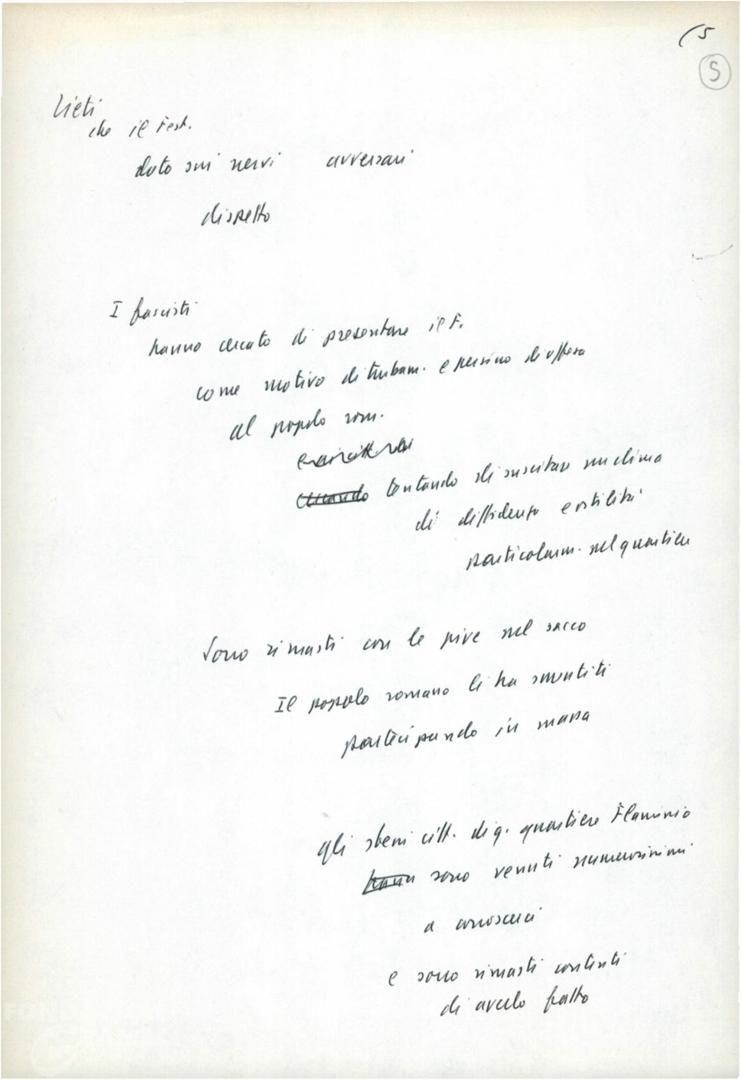 (5
5
Lieti
che il Fest.
dato sui nervi avversari
dispetto
I fascisti
hanno cercato di presentare il F.
come motivo di turbam. e persino di offesa
al popolo rom.
cercando tentando di suscitare un clima
di diffidenza e ostilità
particolarm. nel quartiere
Sono rimasti con le pive nel sacco
Il popolo romano li ha smentiti
partecipando in massa
gli stessi citt. di q. quartiere Flaminio
hann sono venuti numerosissimi
a conoscerci
e sono rimasti contenti
di averlo fatto